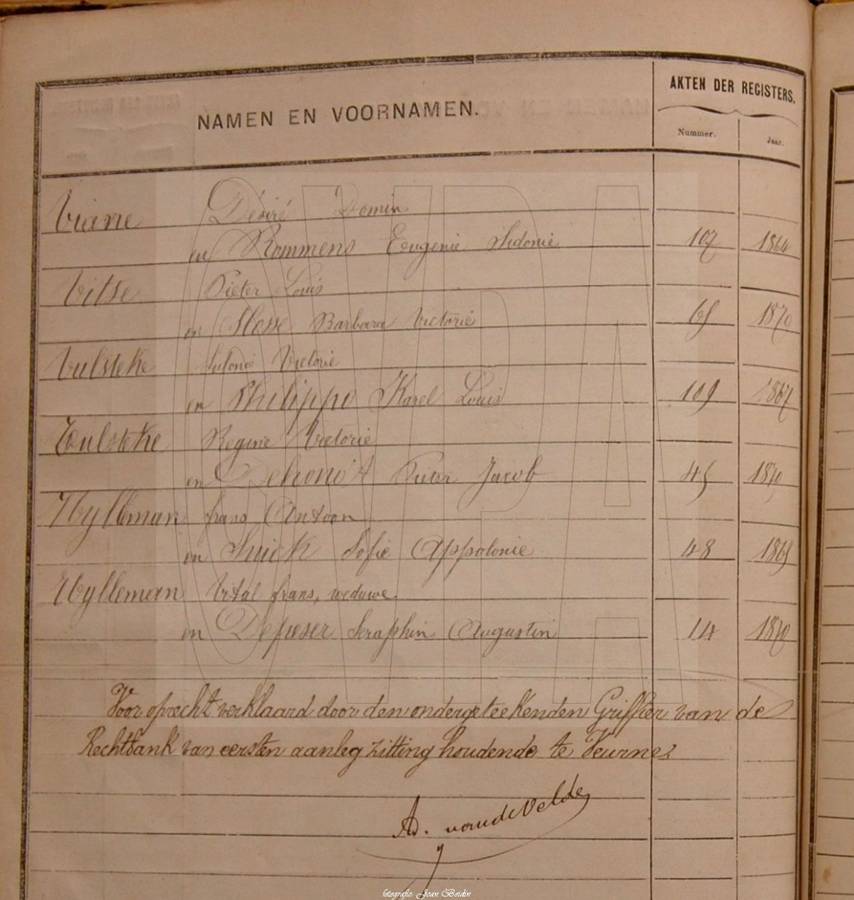 NAMEN EN VOORNAMEN.
AKTEN DER REGISTERS.
Nummer. Jaar.
Viane Désiré Domin
en Rommens Eugenie Sidonie 107 1864
Vitse Pieter Louis
en Barbara Victorie 1870
Vulsteke Sidonie Victorie
en Philippe Karel Louis 109 1867
Vulsteke Regine Victorie
en Pieter Jacob
Wylleman frans Antoon
en Sofie Appolonie 48
Wylleman Vital frans, weduwe
en Seraphin Augustin 14
Voor oprecht verklaard door den ondergeteekenden Griffier van de
Rechtbank van eersten aanleg zitting houdende te Veurne
Ad. vandeVelde
fotografie: Joan Boidin